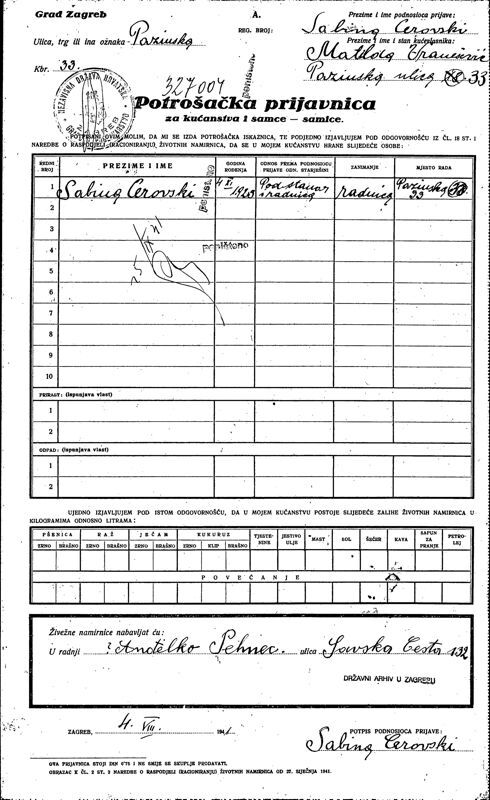 Grad Zagreb
A.
Prezime i ime podnosioca prijave:
Sabina Cerovski
REG. BROJ:
Ulica, trg ili ina oznaka Pazinska
Prezime i ime i stan kućevlasnika:
Matilda
Kbr. 33.
Pazinska ulica 33
327004
poništeno
NEZAVISNA DRŽAVA HRVATSKA
Potrošačka prijavnica
za kućanstva i samce — samice.
OVIM MOLIM, DA MI SE IZDA POTROŠAČKA ISKAZNICA, TE PODJEDNO IZJAVLJUJEM POD ODGOVORNOŠĆU IZ ČL. 18 ST. 1
NAREDBE O RASPODJELI (RACIONIRANJU) ŽIVOTNIH NAMIRNICA, DA SE U MOJEM KUĆANSTVU HRANE SLIJEDEĆE OSOBE:
REDNI BROJ
PREZIME I IME
GODINA ROĐENJA
ODNOS PREMA PODNOSIOCU PRIJAVE ODN. STARJEŠINI
ZANIMANJE
MJESTO RADA
1 Sabina Cerovski 4 XI. 1923 Podstanar radnica Pazinska 33
poništeno
2
3
4 poništeno
25/IX 41
5
6
7
8
9
10
PRIRAST: (ispunjava vlast)
1
2
ODPAD: (ispunjava vlast)
1
2
UJEDNO IZJAVLJUJEM POD ISTOM ODGOVORNOŠĆU, DA U MOJEM KUĆANSTVU POSTOJE SLIJEDEĆE ZALIHE ŽIVOTNIH NAMIRNICA U
KILOGRAMIMA ODNOSNO LITRAMA:
PŠENICA RAŽ JEČAM KUKURUZ TJESTENINE JESTIVO ULJE MAST SOL ŠEĆER KAVA SAPUN ZA PRANJE PETROLEJ
ZRNO BRAŠNO ZRNO BRAŠNO ZRNO BRAŠNO ZRNO KLIP BRAŠNO
POVEĆANJE
Živežne namirnice nabavljat ću:
U radnji Anđelko Pehnec. ulica Savska Cesta 132
DRŽAVNI ARHIV U ZAGREBU
ZAGREB, 4. VIII. 1941
POTPIS PODNOSIOCA PRIJAVE:
Sabina Cerovski
OVA PRIJAVNICA STOJI DIN 0'75 I NE SMIJE SE SKUPLJE PRODAVATI.
OBRAZAC K ČL. 2 ST. 2 NAREDBE O RASPODJELI (RACIONIRANJU) ŽIVOTNIH NAMIRNICA OD 27. SIJEČNJA 1941.